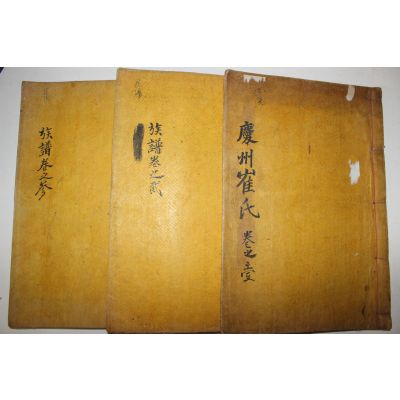 慶州崔氏 卷之壹
族譜卷之貳
族譜卷之參